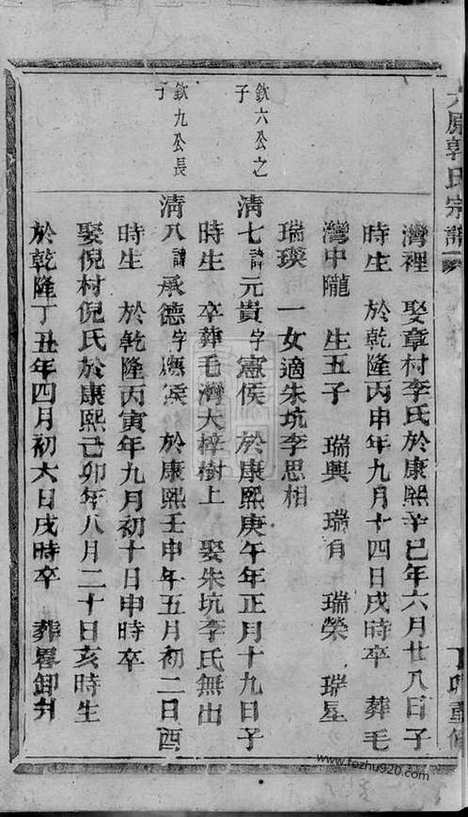 六原郭氏宗譜
灣裡 娶章村李氏於康熙辛巳年六月廿八日子
時生 於乾隆丙申年九月十四日戌時卒 葬毛
灣中隴 生五子 瑞興 瑞有 瑞榮 瑞星
瑞瑛 一女適朱坑李思相
欽六公之子
清七諱元貴字憲侯 於康熙庚午年正月十九日子
時生 卒葬毛灣大樟樹上 娶朱坑李氏無出
欽九公長子
清八諱承德字 於康熙壬申年五月初二日酉
時生 於乾隆丙寅年九月初十日申時卒
娶倪村倪氏於康熙己卯年八月二十日亥時生
於乾隆丁丑年四月初六日戌時卒 葬
丁卯重修
www.fozhu920.com